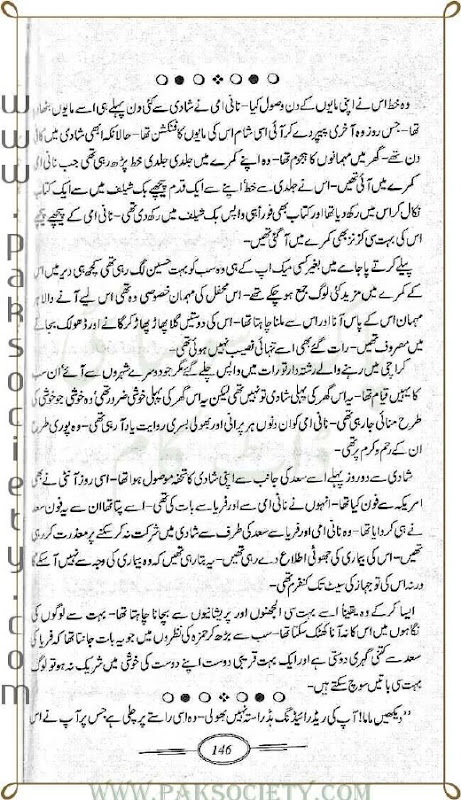 WWW.PAKSOCIETY.COM
www.paksociety.com
وہ خط اس نے اپنی مایوں کے دن وصول کیا- نانی امی نے شادی سے کئی دن پہلے ہی اسے مایوں بٹھا
تھا- جس روز وہ آخری پیپر دے کر آئی اسی شام اس کی مایوں کا فنکشن تھا- حالانکہ ابھی شادی میں کافی
دن تھے- گھر میں مہمانوں کا ہجوم تھا- وہ اپنے کمرے میں جلدی جلدی خط پڑھ رہی تھی جب نانی امی
کمرے میں آئی تھیں- اس نے جلدی سے خط اپنے سے ایک قدم پیچھے بک شیلف میں سے ایک کتاب
نکال کر اس میں رکھ دیا تھا اور کتاب بھی فوراً ہی واپس بک شیلف میں رکھ دی تھی- نانی امی کے پیچھے پیچھے
اس کی بہت سی کزنز بھی کمرے میں آ گئی تھیں-
پیلے کرتے پاجامے میں بغیر کسی میک اپ کے ہی وہ سب کو بہت حسین لگ رہی تھی کچھ ہی دیر میں اس
کے کمرے میں مزید کئی لوگ جمع ہو چکے تھے- اس محفل کی مہمان خصوصی وہ تھی اس لیے آنے والا ہر
مہمان اس کے پاس آنا اور اس سے ملنا چاہتا تھا- اس کی دوستیں گلا پھاڑ پھاڑ کر گانے اور ڈھولک بجانے
میں مصروف تھیں- رات گئے بھی اسے تنہائی نصیب نہیں ہوئی تھی-
کراچی میں رہنے والے رشتہ دار تو رات میں واپس چلے گئے مگر جو دوسرے شہروں سے آئے ان سب
کا یہیں قیام تھا- یہ اس گھر کی پہلی شادی تو نہیں تھی لیکن یہ اس گھر کی پہلی خوشی ضرور تھی وہ خوشی جو خوشی کی
طرح منائی جا رہی تھی- نانی امی کو ان دنوں ہر پرانی اور بھولی بسری روایت یاد آ رہی تھی- وہ پوری طرح
ان کے رحم و کرم پر تھی-
شادی سے دو روز پہلے اسے سعد کی جانب سے اپنی شادی کا تحفہ موصول ہوا تھا- اسی روز آنٹی نے بھی
امریکہ سے فون کیا تھا- انہوں نے نانی امی سے اور فریا سے بات کی تھی- اسے پتا تھا ان سے یہ فون سعد
نے ہی کروایا تھا- وہ نانی امی اور فریا سے سعد کی طرف سے شادی میں شرکت نہ کر سکنے پر معذرت کر رہی
تھیں- اس کی بیماری کی جھوٹی اطلاع دے رہی تھیں- یہ بتا رہی تھیں کہ وہ بیماری کی وجہ سے نہیں آ سکے گا
ورنہ اس کی تو جہاز کی سیٹ تک کنفرم تھی-
ایسا کر کے وہ یقیناً اسے بہت سی الجھنوں اور پریشانیوں سے بچانا چاہتا تھا- بہت سے لوگوں کی
نگاہوں میں اس کا نہ آنا کھٹک سکتا تھا- سب سے بڑھ کر حمزہ کی نظروں میں جو یہ بات جانتا تھا کہ فریا کی
سعد سے کتنی گہری دوستی ہے اور ایک بہت قریبی دوست اپنے دوست کی خوشی میں شریک نہ ہو تو لوگ
بہت سی باتیں سوچ سکتے ہیں-
”دیکھیں ماما! آپ کی ریڈ رائیڈنگ ہڈ راستہ نہیں بھولی- وہ اسی راستے پر چلی ہے جس پر آپ نے اس
146
WWW.PAKSOCIETY.COM